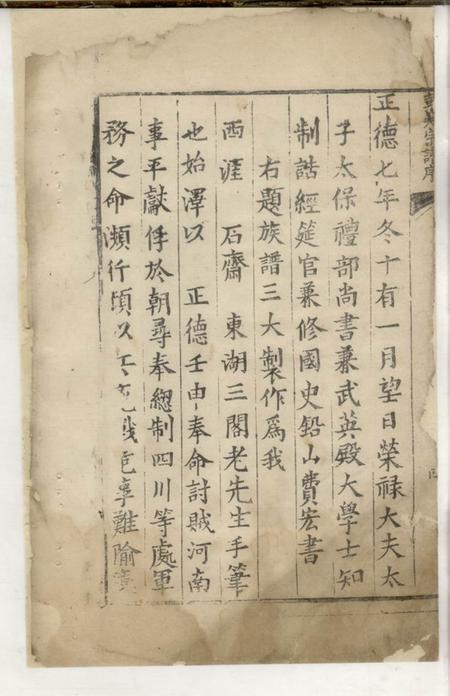 正德七年冬十有一月望日榮祿大夫太
子太保禮部尚書兼武英殿大學士知
制誥經筵官兼修國史鉛山費宏書
右題族譜三大製作爲我
西涯 石齋 東湖三閣老先生手筆
也始澤以 正德壬申奉命討賊河南
事平獻俘於朝尋奉緫制四川等處軍
務之命瀕行頃以
事難隃